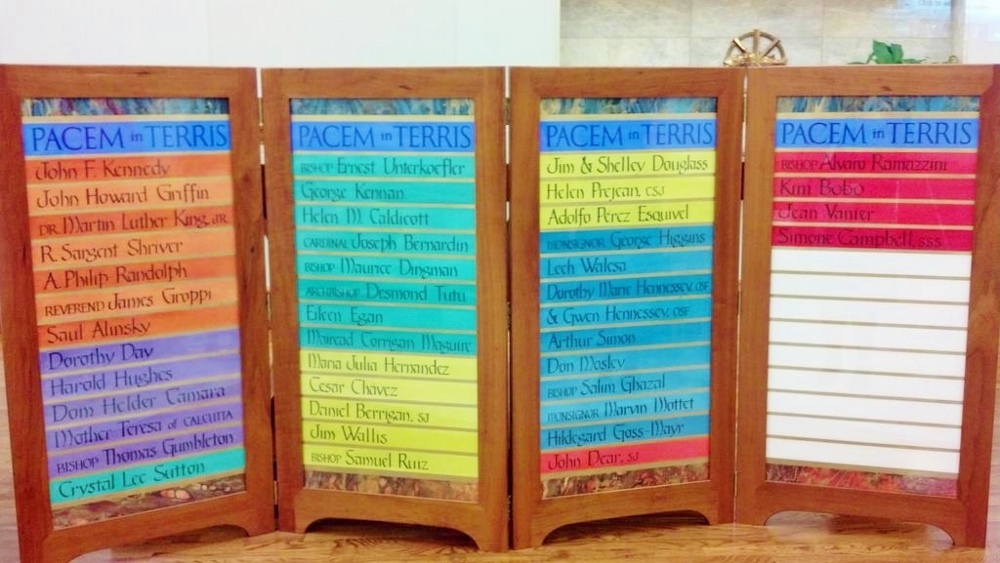 PACEM in TERRIS
John F. Kennedy
John Howard Griffin
DR. Martin Luther King, JR.
R. Sargent Shriver
A. Philip Randolph
REVEREND James Groppi
Saul Alinsky
Dorothy Day
Harold Hughes
Dom Helder Camara
Mother Teresa of CALCUTTA
BISHOP Thomas Gumbleton
Crystal Lee Sutton
PACEM in TERRIS
BISHOP Ernest Unterkoefler
George Kennan
Helen M. Caldicott
CARDINAL Joseph Bernardin
BISHOP Maurice Dingman
ARCHBISHOP Desmond Tutu
Eileen Egan
Mairead Corrigan Maguire
Maria Julia Hernandez
Cesar Chavez
Daniel Berrigan, SJ
Jim Wallis
BISHOP Samuel Ruiz
PACEM in TERRIS
Jim & Shelley Douglass
Helen Prejean, CSJ
Adolfo Perez Esquivel
MONSIGNOR George Higgins
Lech Walesa
Dorothy Marie Hennessey, OSF
& Gwen Hennessey, OSF
Arthur Simon
Don Mosley
BISHOP Salim Ghazal
MONSIGNOR Marvin Mottet
Hildegard Goss-Mayr
John Dear, SJ
PACEM in TERRIS
BISHOP Alvaro Ramazzini
Kim Bobo
Jean Vanier
Simone Campbell, SSS